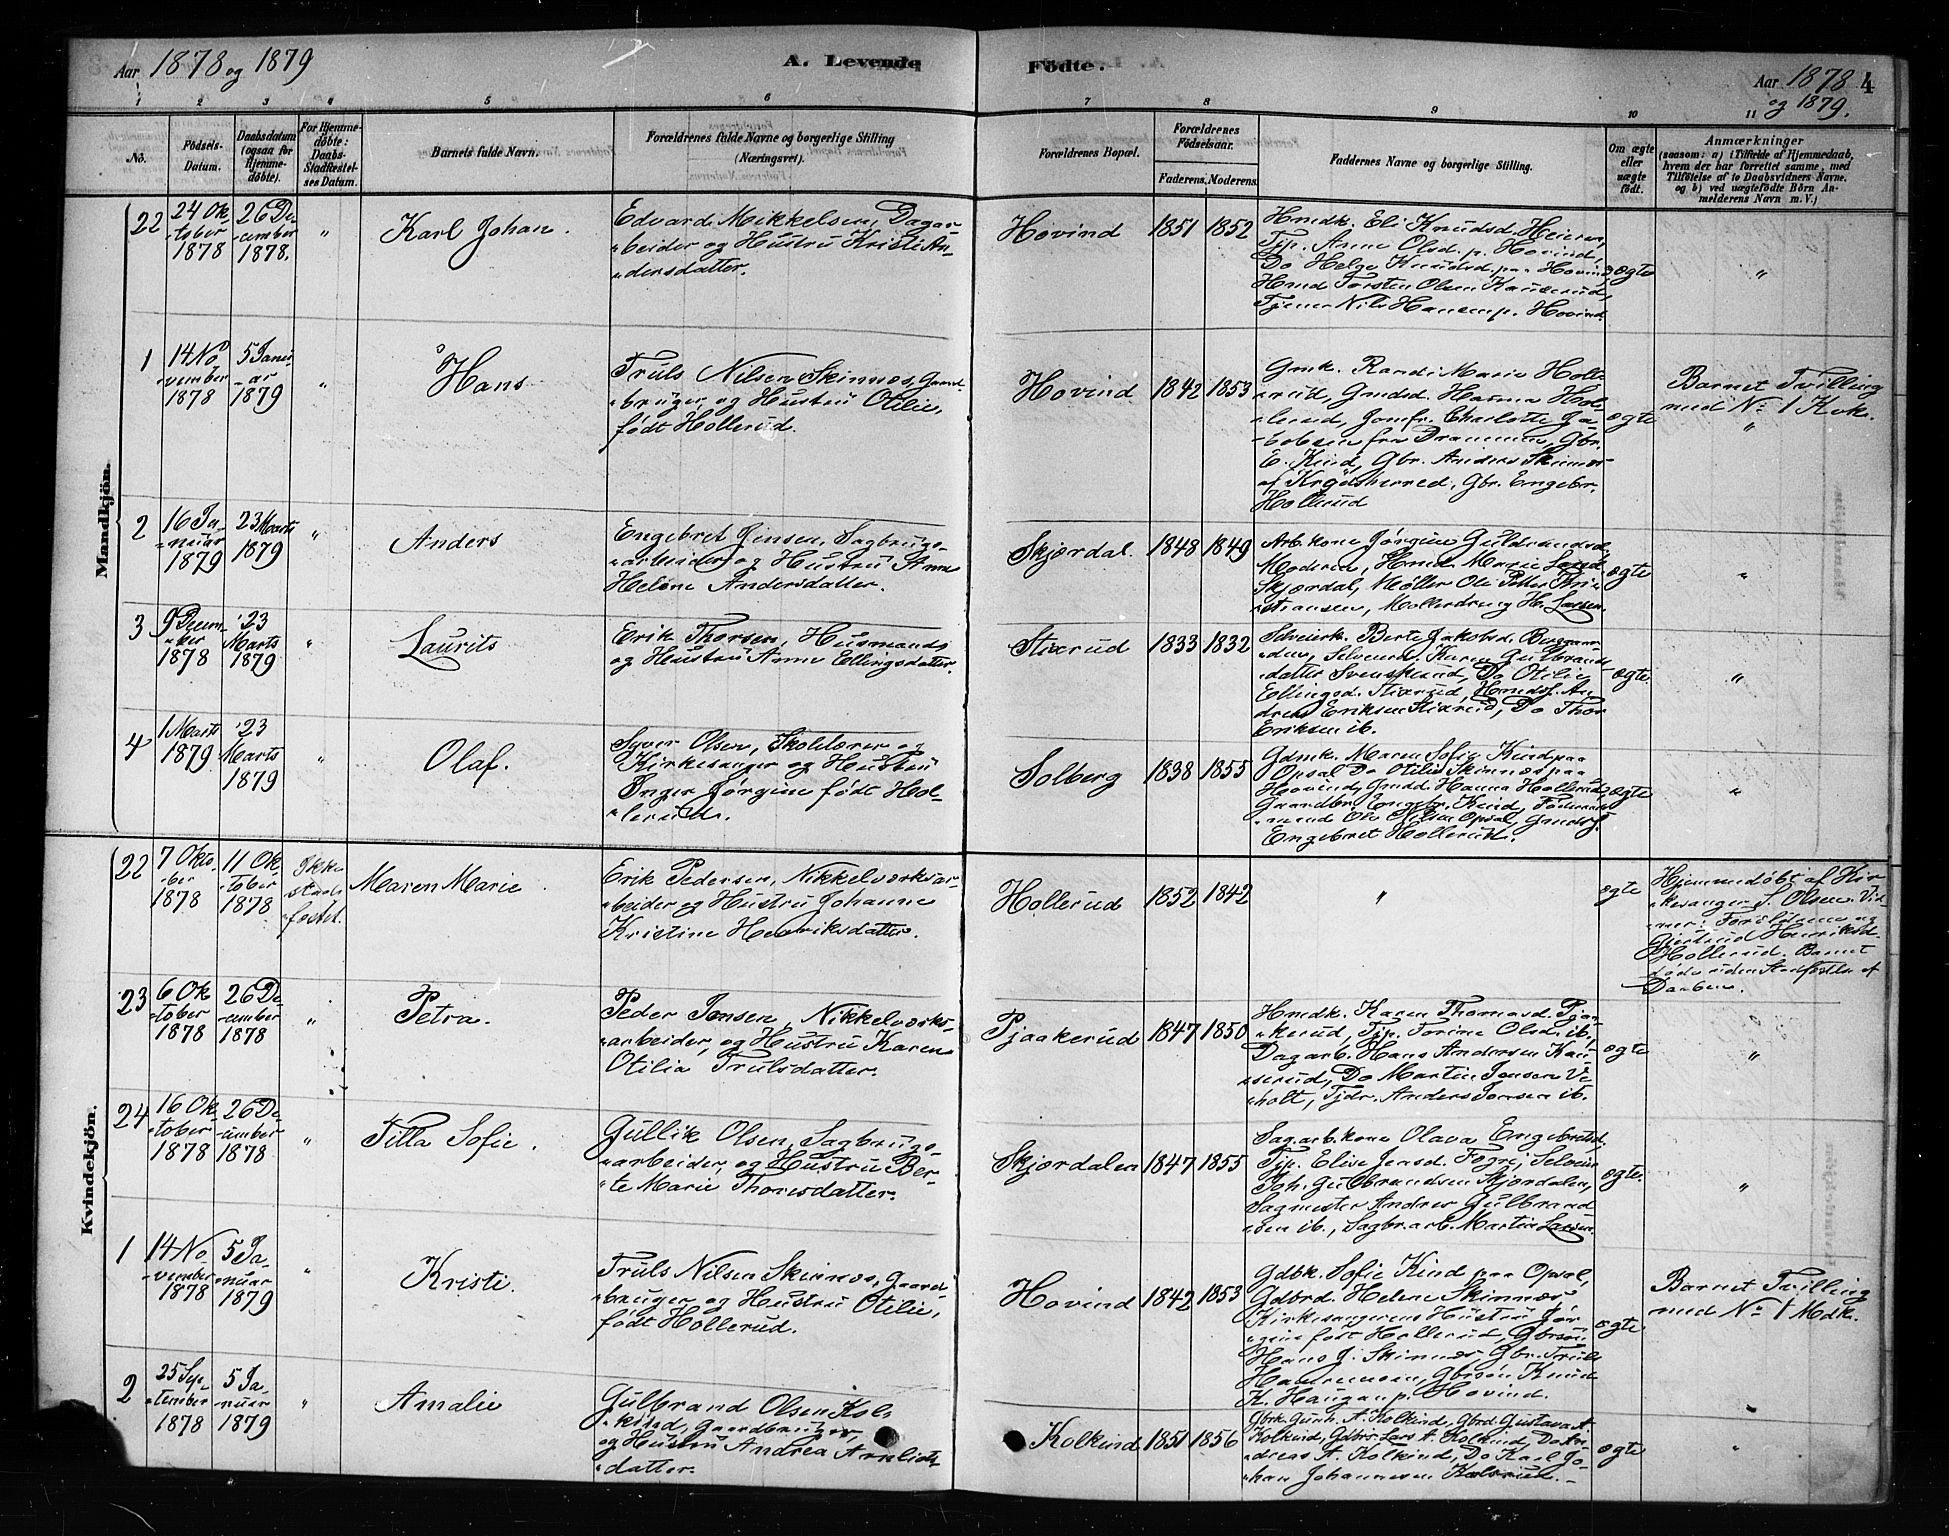 Aar 1878 og 1879
A. Levende Födte.
Aar 1878 4
og 1879.
1 2 3 4 5 6 7 8 9 10 11
No. Födsels-Datum. Daabsdatum (ogsaa for Hjemmedöbte). For Hjemmedöbte: Daabs-Stadfæstelses Datum. Barnets fulde Navn. Forældrenes fulde Navne og borgerlige Stilling (Næringsvei). Forældrenes Bopæl. Forældrenes Födselsaar. Faderens. Moderens. Faddernes Navne og borgerlige Stilling. Om ægte eller uægte födt. Anmærkninger
(saasom: a) i Tilfælde af Hjemmedaab,
hvem der har forrettet samme, med
Tilföielse af to Daabsvidners Navne,
og b) ved uægtefödte Börn An-
melderens Navn m. V.)
Mandkjön.
22 24 Ok-tober 1878 26 De-cember 1878. " Karl Johan.
Edvard Mikkelsen, Dagar-
beider og Hustru Kristi An-
dersdatter.
Hovind 1851 1852
Hmdk. Eli Knudsd. Heieren,
Tjp. Anne Olsd. p. Hovind,
Do Helge Knudsd. paa Hovind,
Hmd Torsten Olsen Kauserud,
Tjener Nils Hansen p. Hovind.
ægte "
1 14 No-vember 1878 5 Janu-ar 1879 " Hans
Truls Nilsen Skinnes, Gaard-
bruger og Hustru Otilie,
født Hollerud.
Hovind 1842 1853
Gmk. Randi Marie Holle-
rud, Gmdsd. Hanna Hol-
lerud, Jomfr. Charlotte Ja-
cobsen fra Drammen, Gbr.
E. Kind, Gbr. Anders Skinnes
af Krødsherred, Gbr. Engebr.
Hollerud
ægte
Barnet Tvilling
med No 1 Kvk.
"
2 16 Ja-nuar 1879 23 Marts 1879 " Anders
Engebret Jensen, Sagbrugs-
arbeider og Hustru Anne
Helene Andersdatter.
Skjørdal. 1848 1849
Arb. kone Jørgine Guldbrandsd.
Moderen, Hmd. Marie
Skjørdal, Møller Ole Petter Kri-
stiansen, Møllerdreng H. Larsen.
ægte "
3 9 Decem-ber 1878 23 Marts 1879 " Laurits
Erik Thorsen, Husmand
og Hustru Anne Ellingsdatter.
Stixrud 1833 1832
Selveierk. Berte Jakobsd.
Selveierd. Karen Gulbrands-
datter Svenskerud, Do Otilie
Ellingsd. Stixrud, Hmdsf. An-
dreas Eriksen Stixrud, Do Thor
Eriksen ib.
ægte. "
4 1 Marts 1879 23 Marts 1879 " Olaf.
Syver Olsen, Skolelærer og
Kirkesanger og Hustru
Inger Jørgine født Hol-
lerud.
Solberg 1838 1855
Gdmk. Maren Sofie Kind paa
Opsal Do Otilie Skinnes paa
Hovind, Gmdd. Hanna Hollerud,
Gaardbr. Engebr. Kind,
mand Ole Nilsen Opsal, Gmdsf.
Engebret Hollerud.
ægte "
Kvindekjön.
22 7 Okto-ber 1878 11 Ok-tober 1878 Ikke stad-fæstet. Maren Marie
Erik Pedersen, Nikkelværksar-
beider og Hustru Johanne
Kristine Henriksdatter.
Hollerud 1852 1842 " ægte
Hjemmedøbt af Kir-
kesanger S. Olsen. Vid-
ner:
Gjertrud Henriksd.
Hollerud. Barnet
døde uden Stadfæstelse af
Daaben.
23 6 Ok-tober 1878 26 De-cember 1878 " Petra.
Peder Jensen, Nikkelværks-
arbeider, og Hustru Karen
Otilia Trulsdatter.
Pjaakerud 1847 1850
Hmdk. Karen Thomasd. Pjaa-
kerud, Tjp. Torine Olsd. ib.,
Dagarb. Hans Andersen Kau-
serud, Do Martin Jensen Ve-
holt, Tjdr. Anders Jensen ib.
ægte "
24 16 Ok-tober 1878 26 De-cember 1878 " Tilla Sofie.
Gullik Olsen, Sagbrugs-
arbeider, og Hustru Ber-
te Marie Thorsdatter.
Skjørdalen 1847 1855
Sagarb. kone Olava Engebretsd.,
Tjp. Elise Jensd. Fagri, Selveier
Joh. Gulbrandsen Skjørdalen,
Sagmester Andreas Gulbrand-
sen ib., Sagbr. arb. Martin Larsen.
ægte. "
1 14 No-vember 1878 5 Ja-nuar 1879 " Kristi.
Truls Nilsen Skinnes, Gaard-
bruger, og Hustru Otilie,
født Hollerud.
Hovind 1842 1853
Gdbk. Sofie Kind paa Opsal,
Gdbrd. Helene Skinnes
Kirkesangerens Hustru Jør-
gine født Hollerud, Gbrsøn
Hans J. Skinnes, Gbr. Truls
Gbrsøn Knud
K. Haugan p. Hovind.
ægte
Barnet Tvilling
med No 1 Mdk.
2 25 Sep-tember 1878 5 Ja-nuar 1879 " Amalie
Gulbrand Olsen Kol-
kind, Gaardbruger,
og Hustru Andrea
datter.
Kolkind 1851 1856
Gbrk. Gunh. A. Kolkind, Gbrd. Gustava A.
Kolkind, Gdbrs. Lars A. Kolkind, Do An-
dreas A. Kolkind, Do Karl Jo-
han Johannesen
ægte "